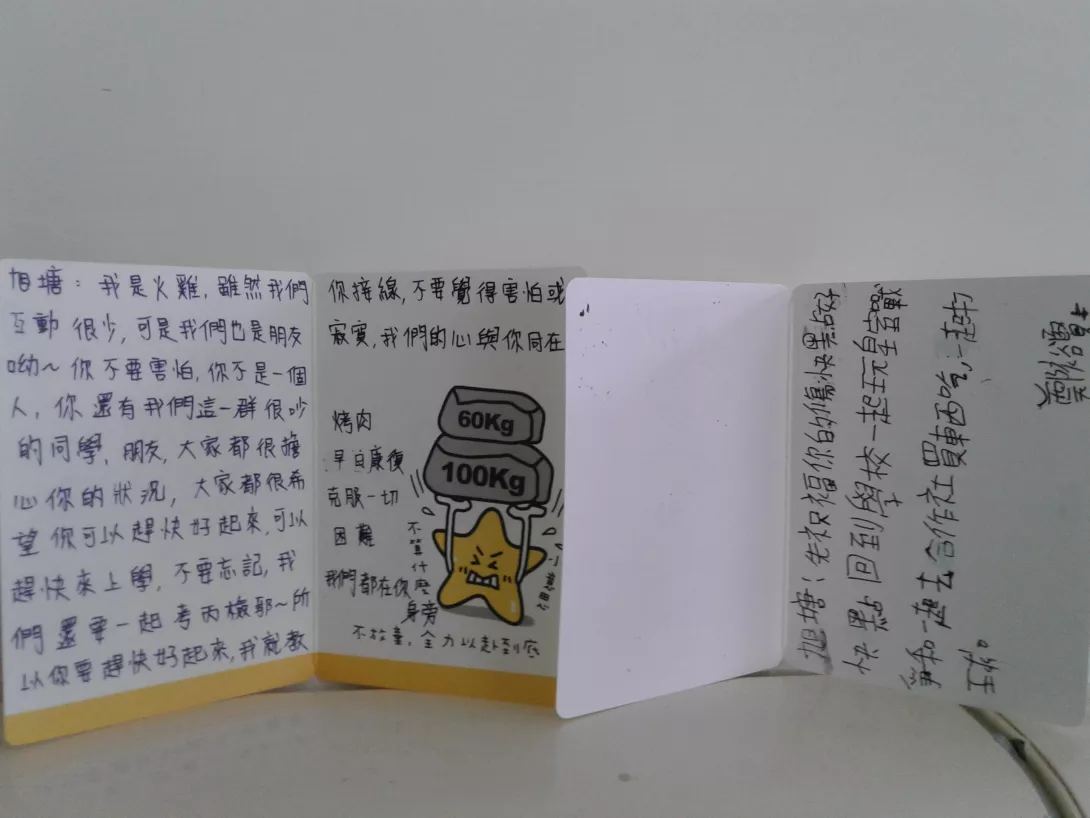 旭塘：我是火雞，雖然我們
互動很少，可是我們也是朋友
呦～你不要害怕，你不是一個
人，你還有我們這一群很吵
的同學，朋友，大家都很擔
心你的狀況，大家都很希
望你可以趕快好起來，可以
趕快來上學，不要忘記，我
們還要一起考丙檢耶～所
以你要趕快好起來，我就教
你接線，不要覺得害怕或
寂寞，我們的心與你同在
烤肉
早日康復
克服一切
困難
不算什麼
我們都在你
身旁
不放棄，全力以赴到底
60Kg
100Kg
旭塘：先祝福你的傷快點好
快點回到學校一起玩皇室戰
爭和一起去合作社買東西吃，一起的